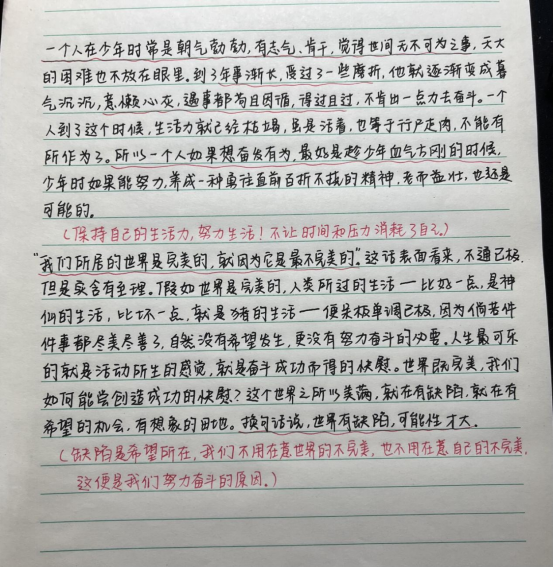 一个人在少年时常是朝气勃勃,有志气、肯干,觉得世间无不可为之事,天大
的困难也不放在眼里。到了年事渐长,受过了一些磨折,他就逐渐变成暮
气沉沉,意懒心灰,遇事都苟且因循,得过且过,不肯出一点力去奋斗。一个
人到了这个时候,生活力就已经枯竭,虽是活着,也等于行尸走肉,不能有
所作为了。所以一个人如果想奋发有为,最好是趁少年血气方刚的时候,
少年时如果能努力,养成一种勇往直前百折不挠的精神,老而益壮,也还是
可能的。
(保持自己的生活力,努力生活!不让时间和压力消耗了自己。)
“我们所居的世界是完美的,就因为它是最不完美的”。这话表面看来,不通已极。
但是实含有至理。假如世界是完美的,人类所过的生活——比好一点,是神
仙的生活,比坏一点,就是猪的生活——便呆板单调已极,因为倘若件
件事都尽美尽善了,自然没有希望发生,更没有努力奋斗的必要。人生最可乐
的就是活动所生的感觉,就是奋斗成功而得的快慰。世界既完美,我们
如何能尝创造成功的快慰?这个世界之所以美满,就在有缺陷,就在有
希望的机会,有想象的田地。换句话说,世界有缺陷,可能性才大。
(缺陷是希望所在,我们不用在意世界的不完美,也不用在意自己的不完美,
这便是我们努力奋斗的原因。)